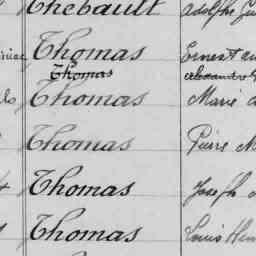 Thébault Adolphe
Thomas Ernest
Thomas
Thomas Marie
Thomas Pierre M
Thomas Joseph
Thomas Louis Hen